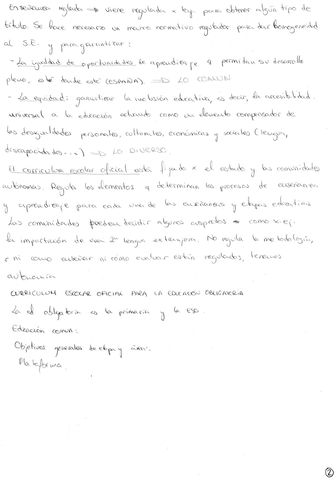 Enseñanza reglada → viene regulada x ley para obtener algún tipo de
título. Se hace necesario un marco normativo regulador para dar homogeneidad
al S.E. y para garantizar:
- La igualdad de oportunidades de aprendizaje y permitan su desarrollo
pleno, esté donde esté (ESPAÑA) ⇒ LO COMÚN
- La equidad: garantizar la inclusión educativa, es decir, la accesibilidad
universal a la educación actuando como un elemento compensador de
las desigualdades personales, culturales, económicas y sociales (lengua,
discapacidades...) ⇒ LO DIVERSO
El currículum escolar oficial está fijado x el estado y las comunidades
autónomas. Regula los elementos y determina los procesos de enseñanza
y aprendizaje para cada una de las enseñanzas y etapas educativas
Las comunidades pueden decidir algunos aspectos como x ej.
la impartición de una 2ª lengua extranjera. No regula la metodología,
ni como enseñar ni como evaluar están regulados, tenemos
autonomía
CURRICULUM ESCOLAR OFICIAL PARA LA EDUCACIÓN OBLIGATORIA
La ed obligatoria es la primaria y la ESO.
Educación común:
Objetivos generales de etapa y área.
Plataforma.
2